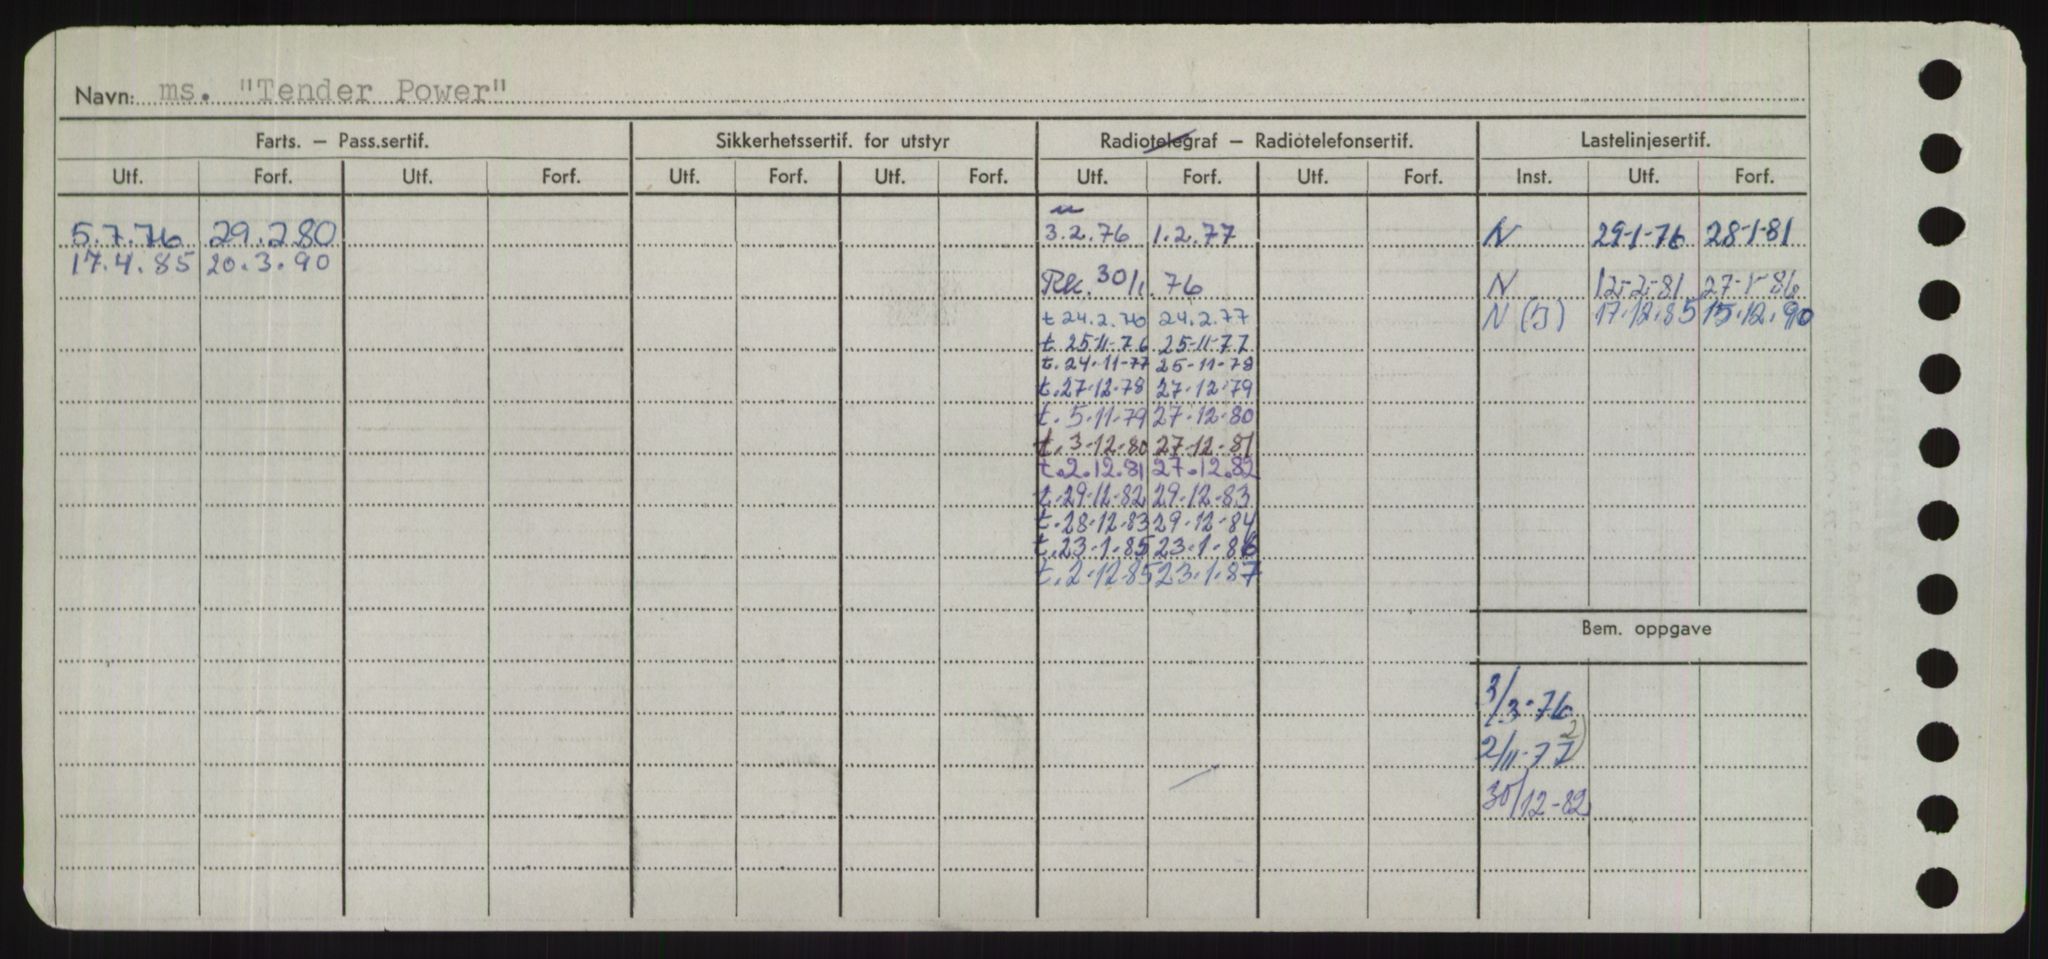 Navn: ms. "Tender Power"
Farts. — Pass.sertif. Sikkerhetssertif. for utstyr Radiotelegraf — Radiotelefonsertif. Lastelinjesertif.
Utf. Forf. Utf. Forf. Utf. Forf. Utf. Forf. Utf. Forf. Utf. Forf. Inst. Utf. Forf.
5.7.76 29.2.80 3.2.76 1.2.77 N 29-1-76 28-1-81
17.4.85 20.3.90
Rk. 30/1.76 N 12-2-81 27-1-86
t 24.2.76 24.2.77 N (J) 17.12.85 15.12.90
t. 25-11-76 25-11-77
t. 24-11-77 25-11-78
t. 27-12-78 27-12-79
t. 5-11-79 27-12-80
t. 3-12-80 27-12-81
t. 2.12.81 27.12.82
t. 29-12-82 29-12-83
t. 28-12-83 29-12-84
t. 23-1-85 23-1-86
t. 2-12-85 23-1-87
Bem. oppgave
3/3-76
2/11-77 2)
30/12-82